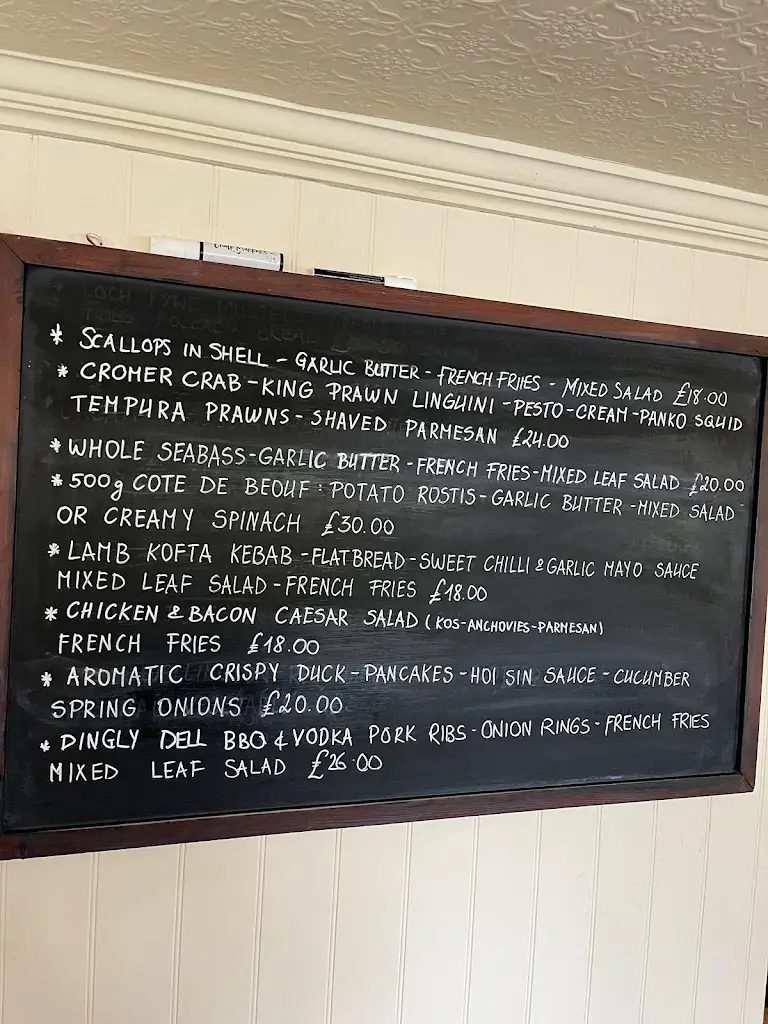 LOCH FYNE MUSSELS
* SCALLOPS IN SHELL - GARLIC BUTTER - FRENCH FRIES - MIXED SALAD £18.00
* CROMER CRAB - KING PRAWN LINGUINI - PESTO - CREAM - PANKO SQUID
TEMPURA PRAWNS - SHAVED PARMESAN £24.00
* WHOLE SEABASS - GARLIC BUTTER - FRENCH FRIES - MIXED LEAF SALAD £20.00
* 500g COTE DE BEOUF : POTATO ROSTIS - GARLIC BUTTER - MIXED SALAD -
OR CREAMY SPINACH £30.00
* LAMB KOFTA KEBAB - FLATBREAD - SWEET CHILLI & GARLIC MAYO SAUCE
MIXED LEAF SALAD - FRENCH FRIES £18.00
* CHICKEN & BACON CAESAR SALAD (KOS-ANCHOVIES-PARMESAN)
FRENCH FRIES £18.00
* AROMATIC CRISPY DUCK - PANCAKES - HOI SIN SAUCE - CUCUMBER
SPRING ONIONS £20.00
* DINGLY DELL BBQ & VODKA PORK RIBS - ONION RINGS - FRENCH FRIES
MIXED LEAF SALAD £26.00